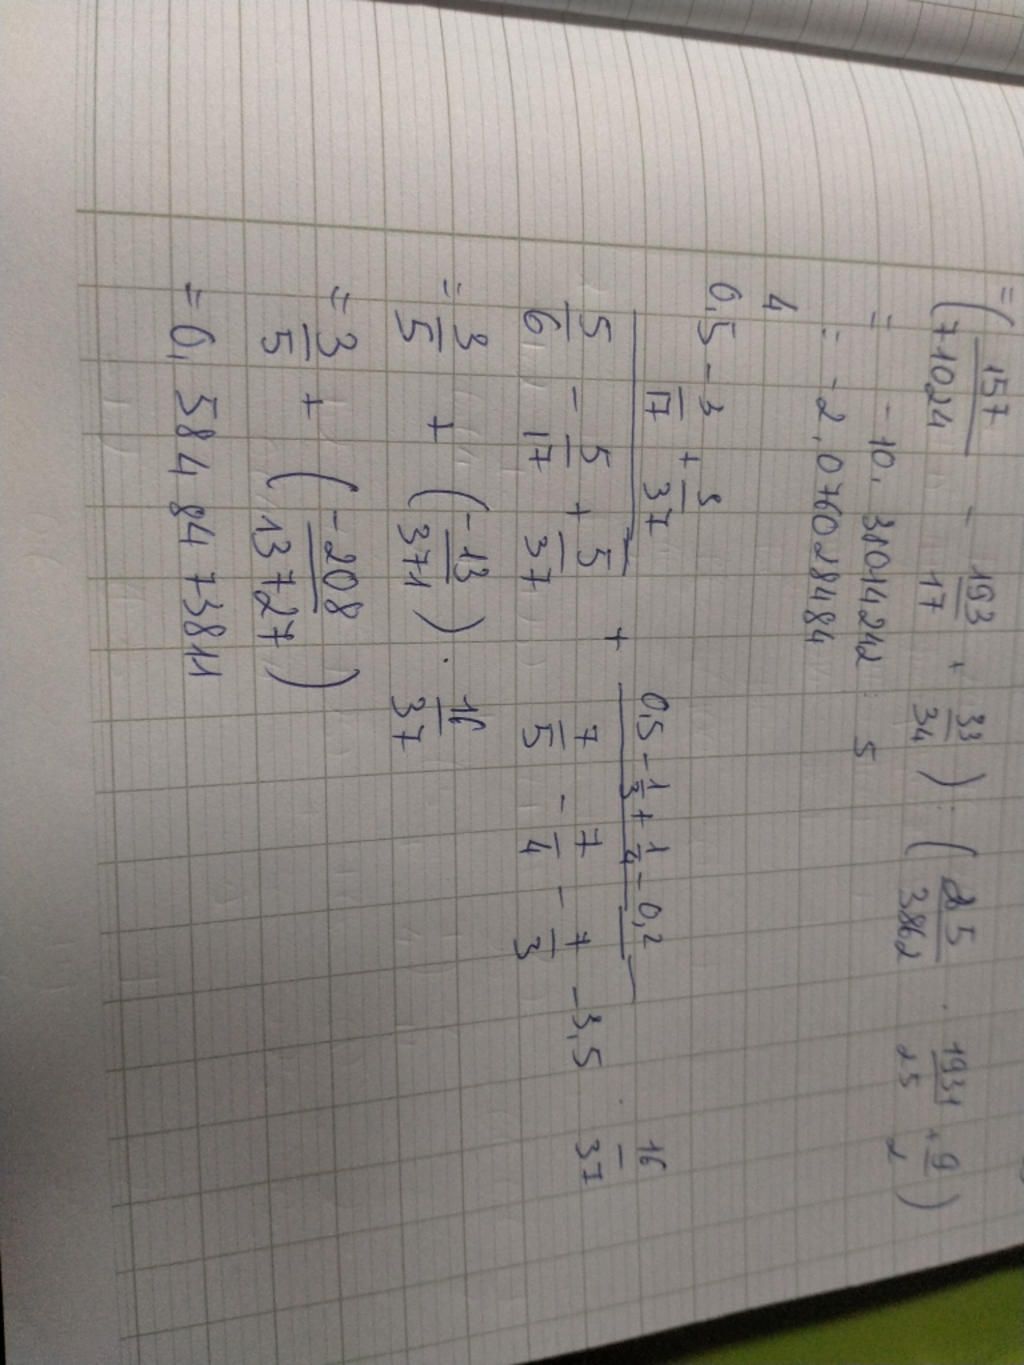 = ( 157/71024 - 193/17 + 33/34 ) : ( 25/3862 . 1931/25 + 9/2 )
= -10, 38014242 : 5
= -2,076028484
4
0,5 - 3/17 + 3/37 0,5 - 1/3 + 1/4 - 0,2 16
5/6 - 5/17 + 5/37 + 7/5 - 7/4 - 7/3 - 3,5 . 37
= 3/5 + ( -13/371 ) . 16/37
= 3/5 + ( -208/13727 )
= 0, 584 84 73811